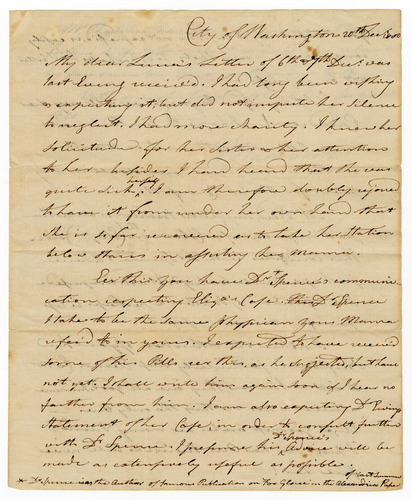 City of Washington 20th Dec 1800
My dear Lucia's Letter of 6th & 7th Dec. was
last Evening received. I had long been wishing
& expecting it, but did not impute her silence
to neglect. I had more charity. I knew her
solicitude for her Sister & her attentions
to her besides I had heard that she was
quite sick herself I am therefore doubly rejoiced
to have it from under her own hand that
she is so far recovered as to take her Station
below stairs in assisting her Mamma.
Ere this you have Dr. Spence's communi-
cation respecting Eliza's Case. The Dr. Spence
I take to be the same Physician your Mamma
refered to in yours. I expected to have received
some of his Pills ere this, as he suggested, but have
not yet. I shall write him again soon if I hear no
farther from him. I am also expecting Dr. Ewing
Statement of her Case in order to consult further
with Dr. Spence. I presume his Dr. Spence's Advice will be
made as extensively useful as possible.
* Dr. Spence is the Author of famous Publication on Fox Glove in the Alexandria Paper
of last Summer